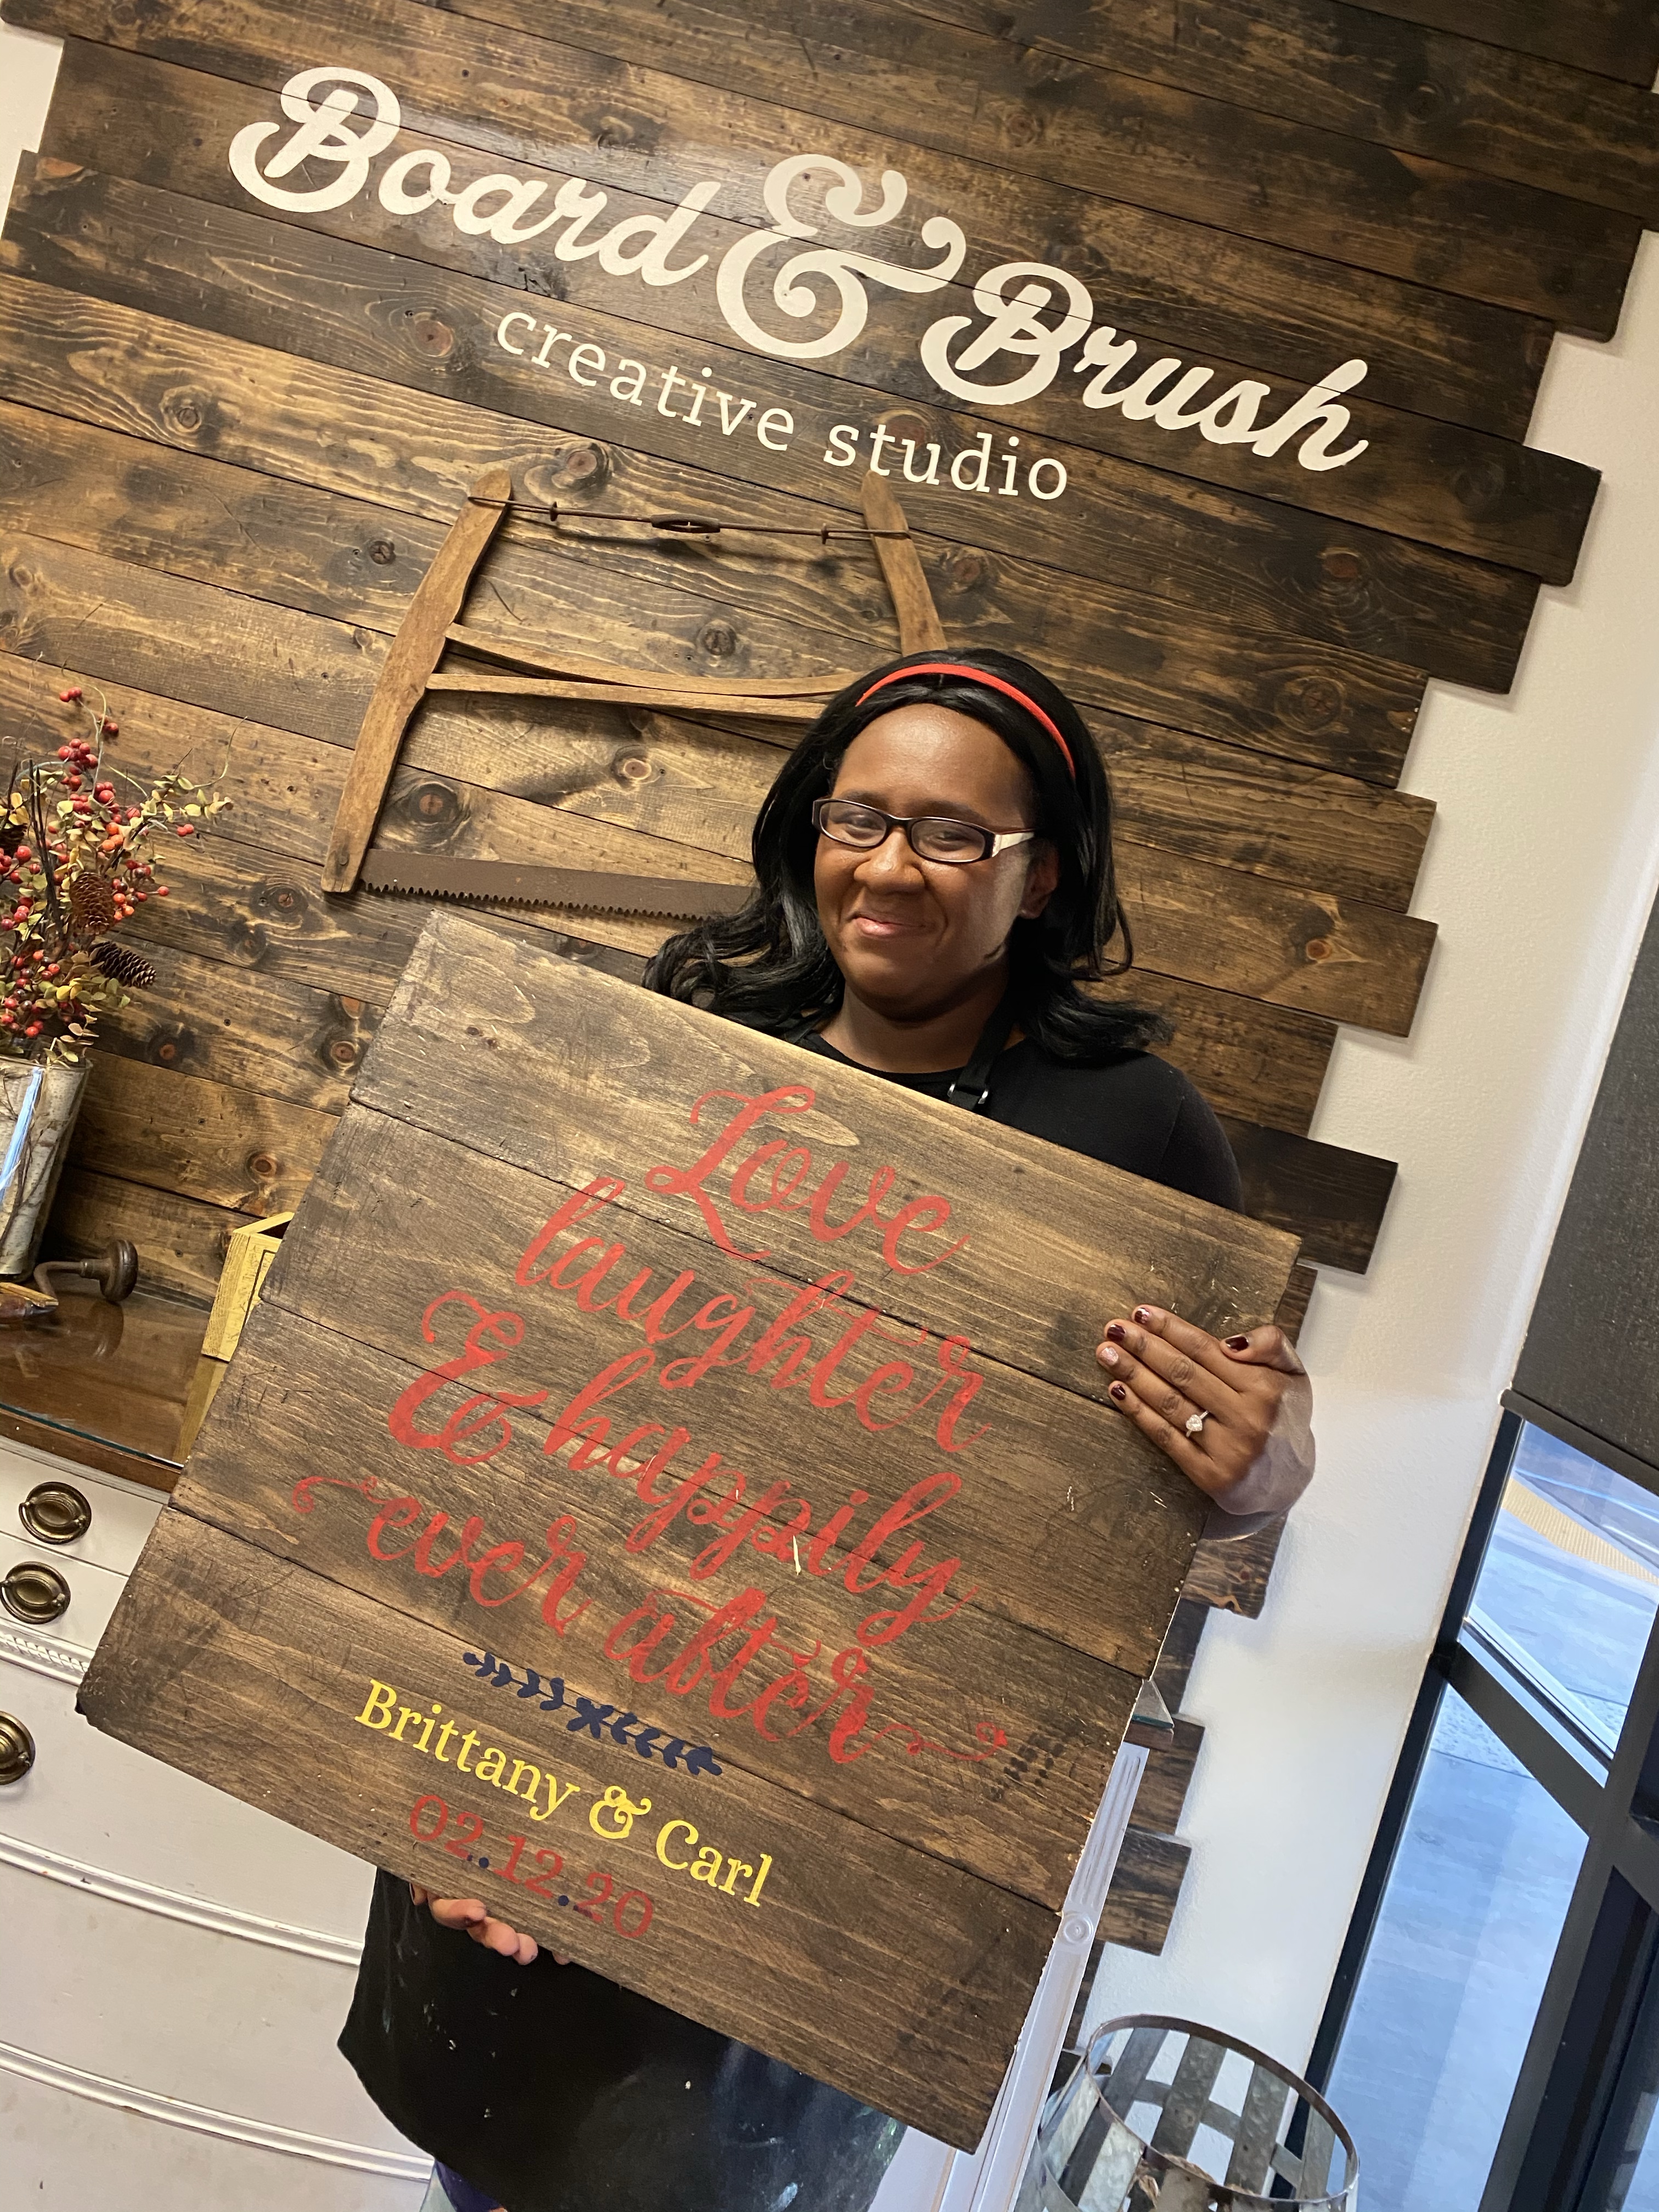 Board & Brush
creative studio
Love
laughter
& happily
ever after
Brittany & Carl
02.12.20